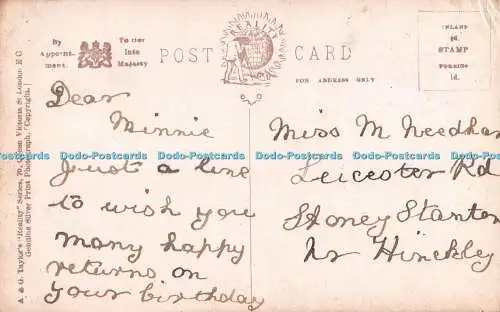 By
Appoint-
ment.
To Her
Late
Majesty
POST
REALITY
CARD
FOR ADDRESS ONLY
INLAND
½d.
STAMP
FOREIGN
1d.
A. & G. Taylor's "Reality" Series, 70, Queen Victoria St London E C
Genuine Silver Print Photograph. "Copyright."
Dear
Minnie
Just a line
to wish you
many happy
returns on
your birthday
Miss M Needha
Leicester Rd
Stoney Stanton
Nr Hinckley
Dodo-Postcards Dodo-Postcards Dodo-Postcards Dodo-Postcards Dodo-Postcards